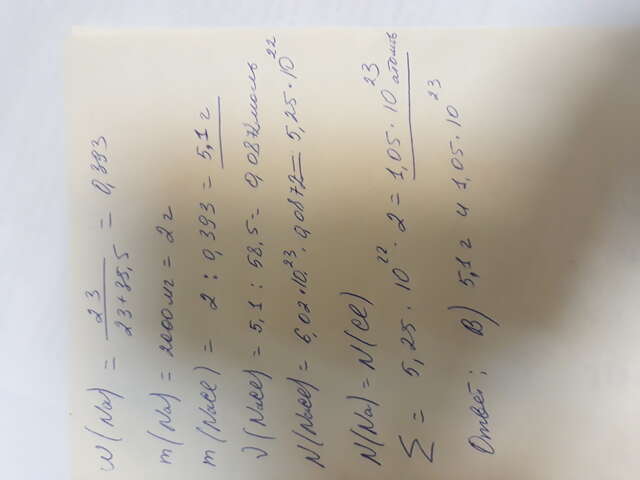 W(Na) = 23 / 23+35,5 = 0,393
m(Na) = 2000 мг = 2 г
m(NaCl) = 2 : 0,393 = 5,1 г
ν(NaCl) = 5,1 : 58,5 = 0,0872 моль
N(NaCl) = 6,02·10²³ · 0,0872 = 5,25·10²²
N(Na) = N(Cl)
Σ = 5,25·10²² · 2 = 1,05·10²³ атомів
Ответ: В) 5,1 г и 1,05·10²³